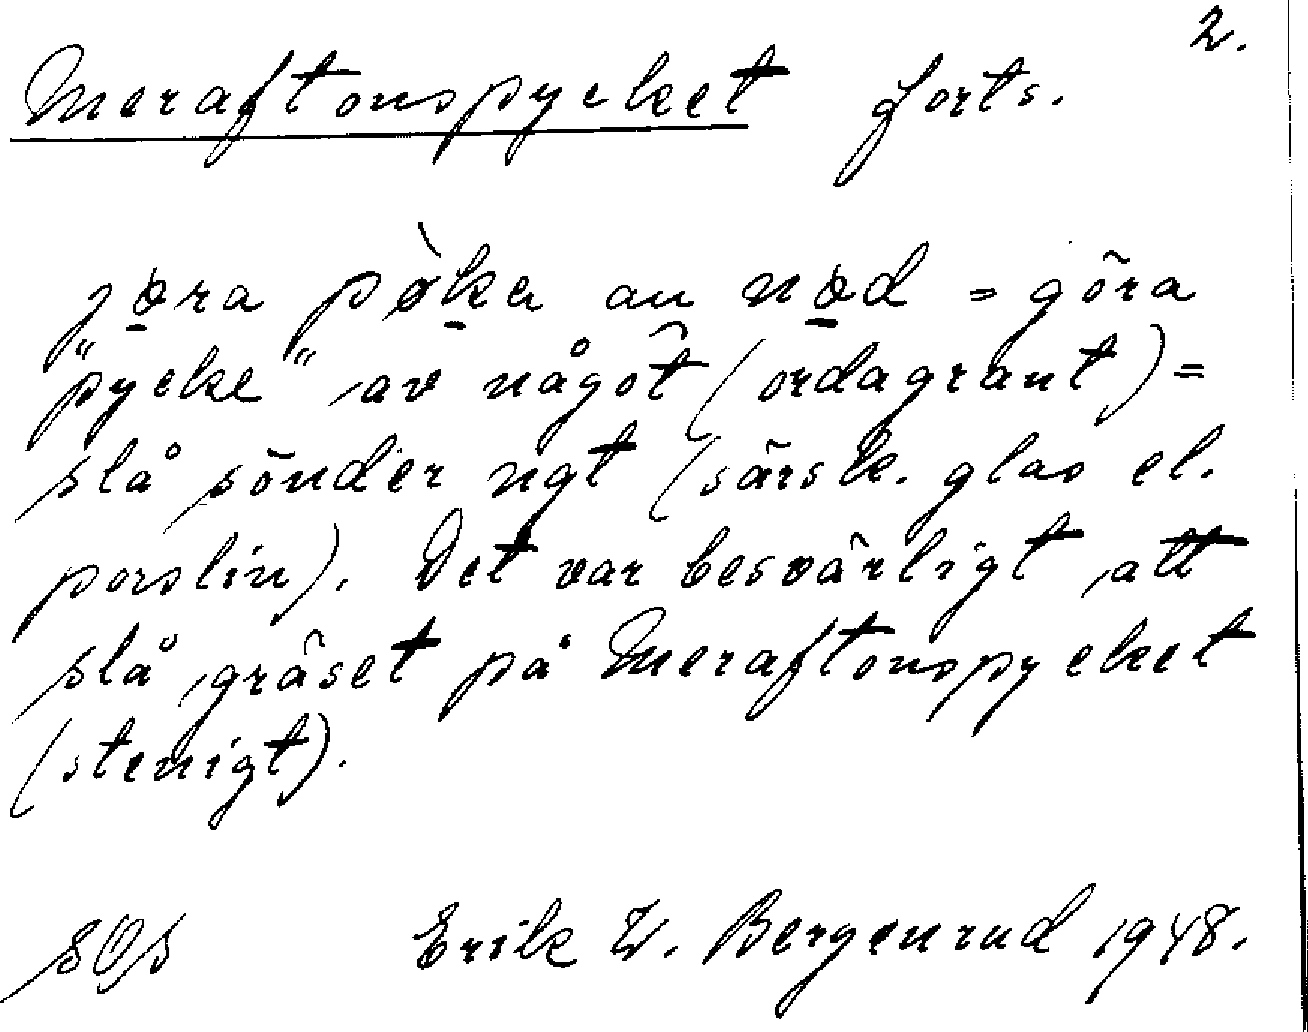 2.
Meraftonspycket forts.
jøra pø̀ka au nød = göra
"pycke" av något (ordagrant) =
slå sönder ngt (särsk. glas el.
porslin). Det var besvärligt att
slå gräset på Meraftonspycket
(stenigt).
SOS Erik W. Bergenrud 1948.